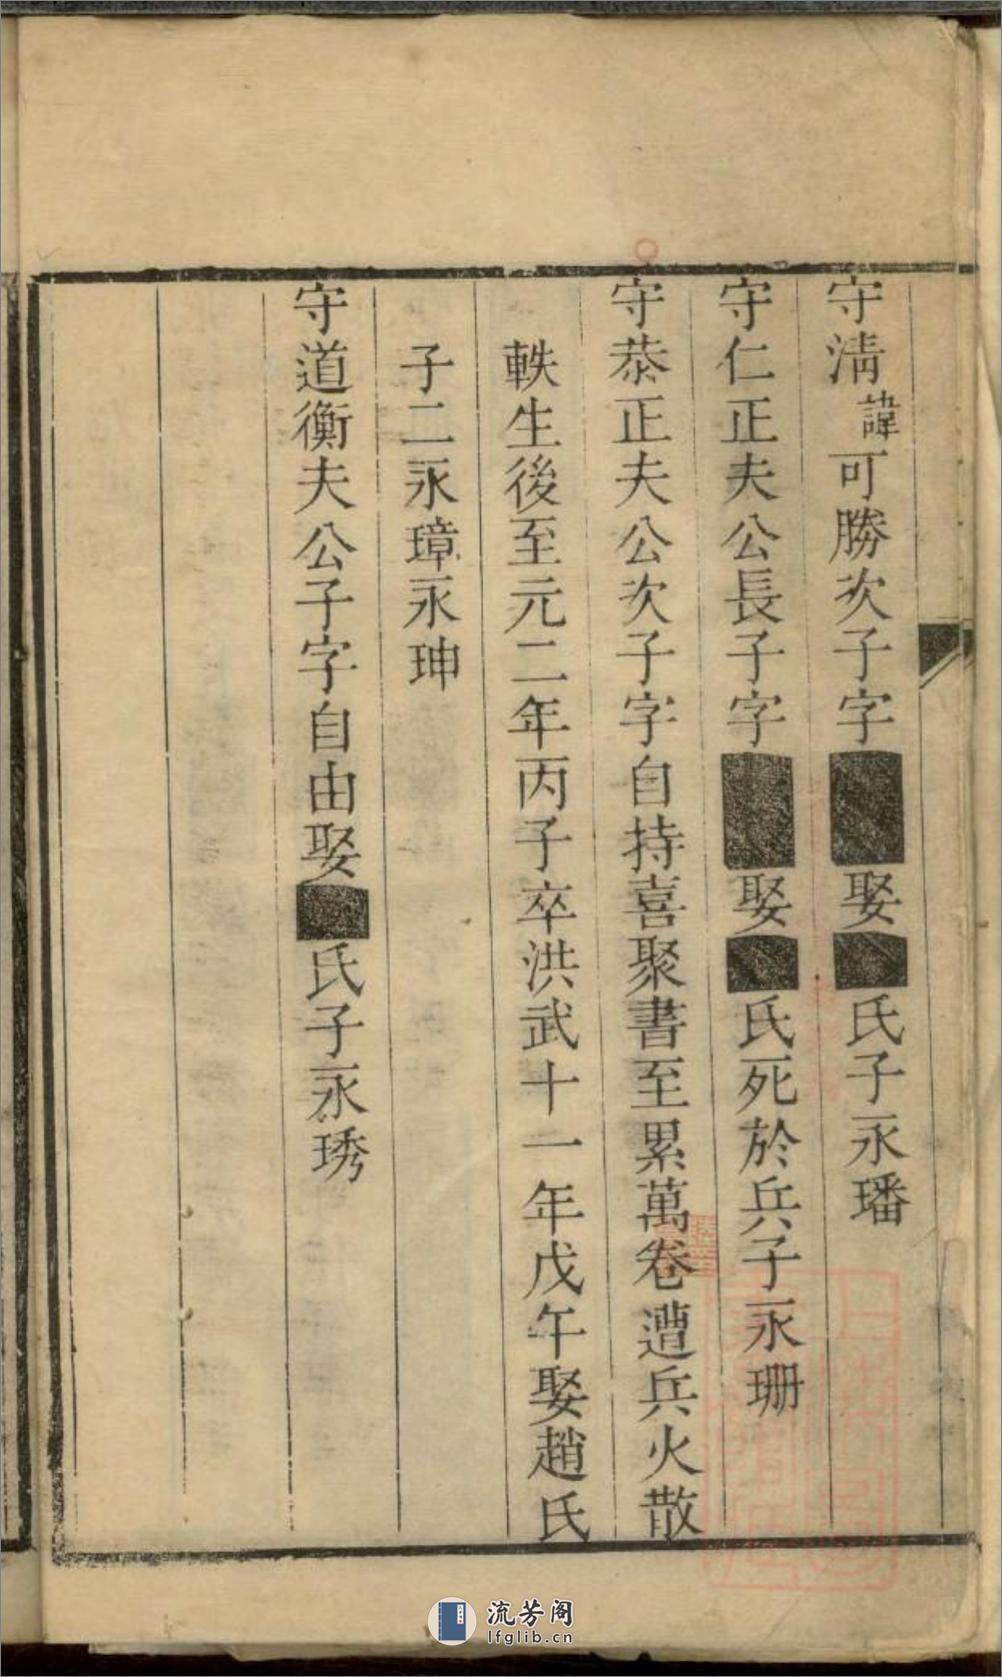 守淸諱可勝次子字■■娶■氏子永璠
守仁正夫公長子字■■娶■氏死於兵子永珊
守恭正夫公次子字自持喜聚書至累萬卷遭兵火散
軼生後至元二年丙子卒洪武十一年戊午娶趙氏
子二永璋永珅
守道衡夫公子字自由娶■氏子永琇
流芳阁
lfglib.cn